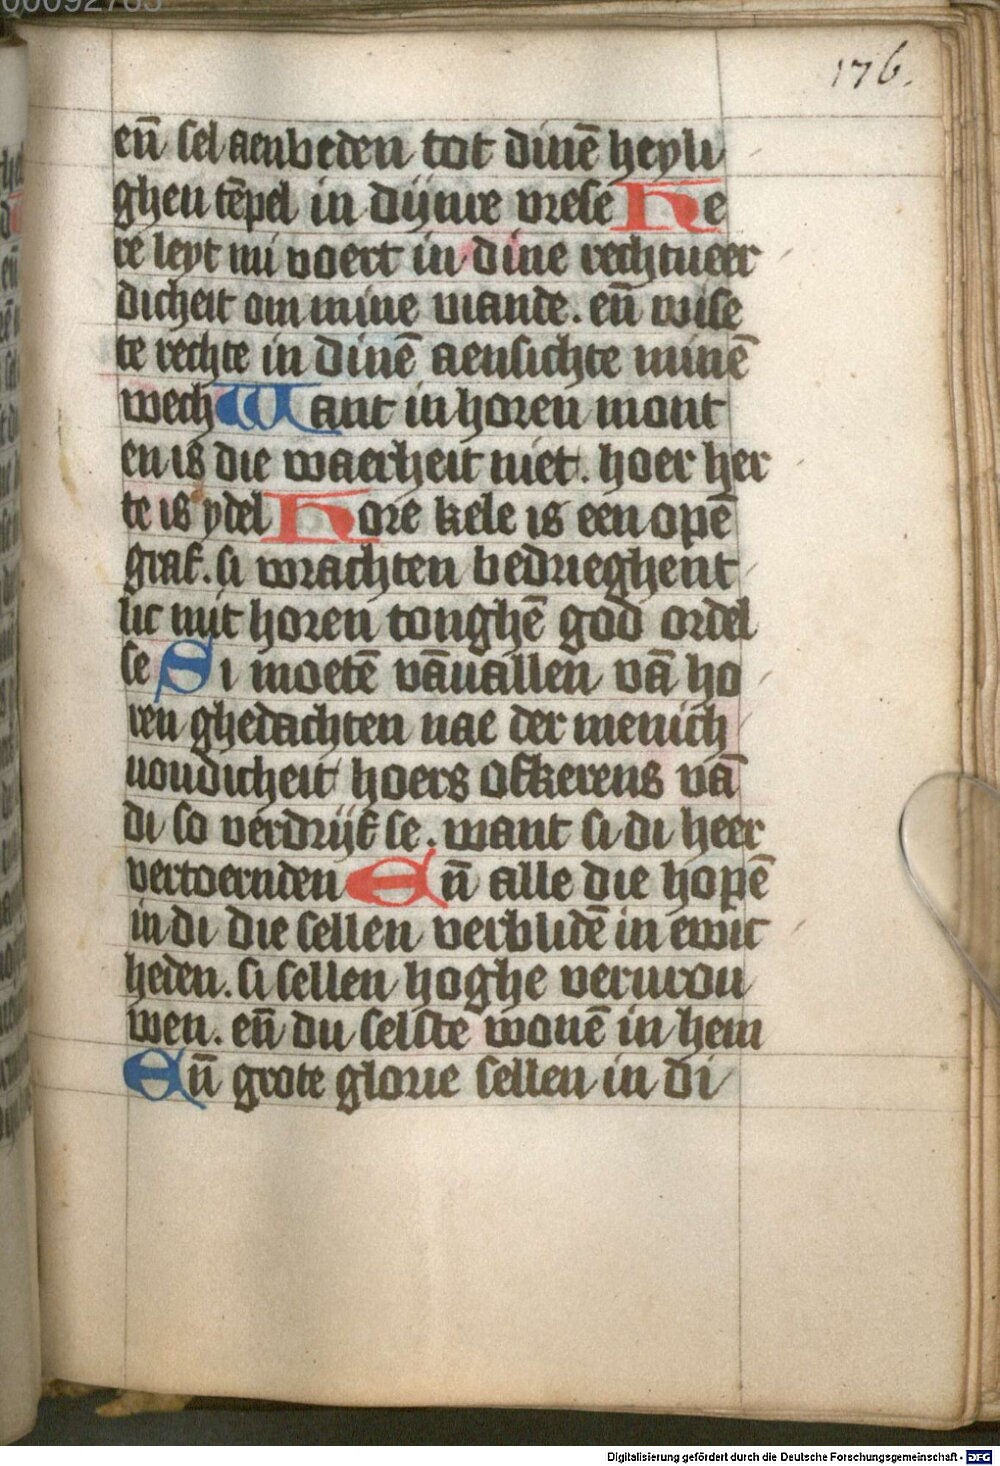 00092785
176.
en̄ sel aenbeden tot dinē heyli
ghen tēpel in dijnre vrese He
re leyt mi voert in dine rechtueer
dicheit om mine viande. en̄ wise
te rechte in dinē aensichte minē
wech Want in horen mont
en is die waerheit niet. hoer her
te is ydel Hore kele is een opē
graf. si wrachten bedrieghent
lic mit horen tonghē god ordel
se Si moetē vāuallen vā ho
ren ghedachten nae der menich
uoudicheit hoers ofkerens vā
di so verdrijf se. want si di heer
vertoernden En̄ alle die hopē
in di die sellen verblidē in ewic
heden. si sellen hoghe verurou
wen. en̄ du selste wonē in hem
En̄ grote glorie sellen in di
Digitalisierung gefördert durch die Deutsche Forschungsgemeinschaft - DFG